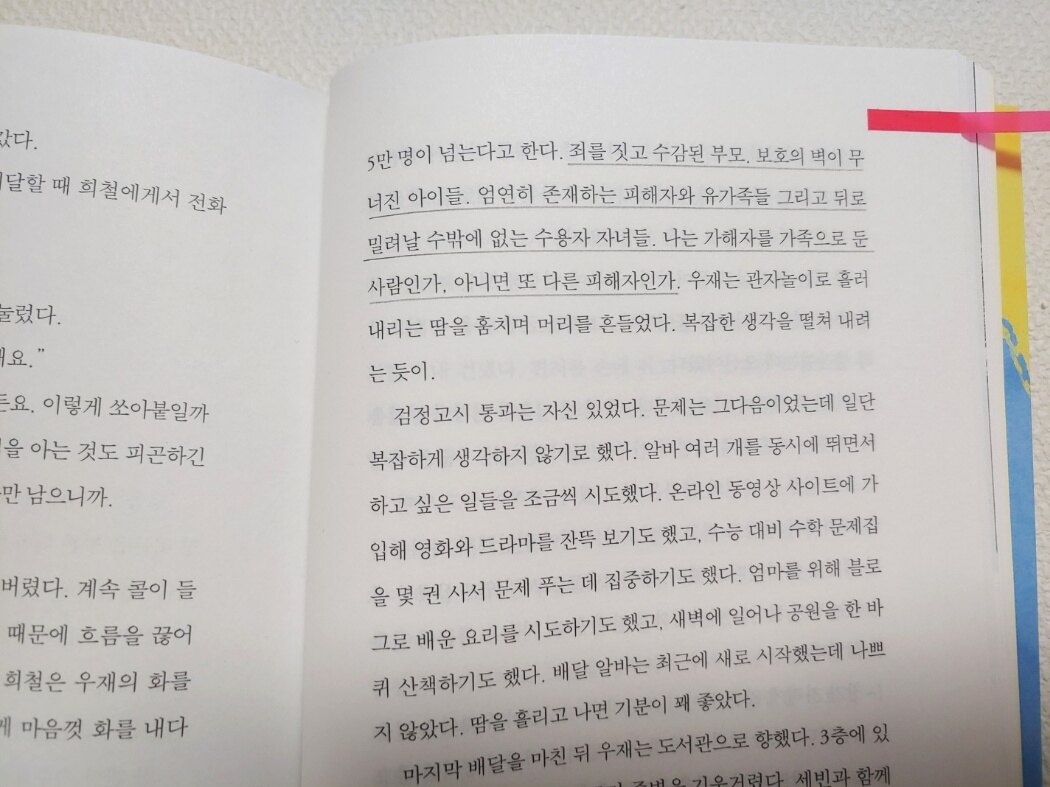 았다.
달할 때 희철에게서 전화
눌렀다.
요.”
든요. 이렇게 쏘아붙일까
을 아는 것도 피곤하긴
만 남으니까.
버렸다. 계속 콜이 들
때문에 흐름을 끊어
희철은 우재의 화를
게 마음껏 화를 내다
5만 명이 넘는다고 한다. 죄를 짓고 수감된 부모. 보호의 벽이 무
너진 아이들. 엄연히 존재하는 피해자와 유가족들 그리고 뒤로
밀려날 수밖에 없는 수용자 자녀들. 나는 가해자를 가족으로 둔
사람인가, 아니면 또 다른 피해자인가. 우재는 관자놀이로 흘러
내리는 땀을 훔치며 머리를 흔들었다. 복잡한 생각을 떨쳐 내려
는 듯이.
검정고시 통과는 자신 있었다. 문제는 그다음이었는데 일단
복잡하게 생각하지 않기로 했다. 알바 여러 개를 동시에 뛰면서
하고 싶은 일들을 조금씩 시도했다. 온라인 동영상 사이트에 가
입해 영화와 드라마를 잔뜩 보기도 했고, 수능 대비 수학 문제집
을 몇 권 사서 문제 푸는 데 집중하기도 했다. 엄마를 위해 블로
그로 배운 요리를 시도하기도 했고, 새벽에 일어나 공원을 한 바
퀴 산책하기도 했다. 배달 알바는 최근에 새로 시작했는데 나쁘
지 않았다. 땀을 흘리고 나면 기분이 꽤 좋았다.
마지막 배달을 마친 뒤 우재는 도서관으로 향했다. 3층에 있
주변을 기웃거렸다. 세빈과 함께